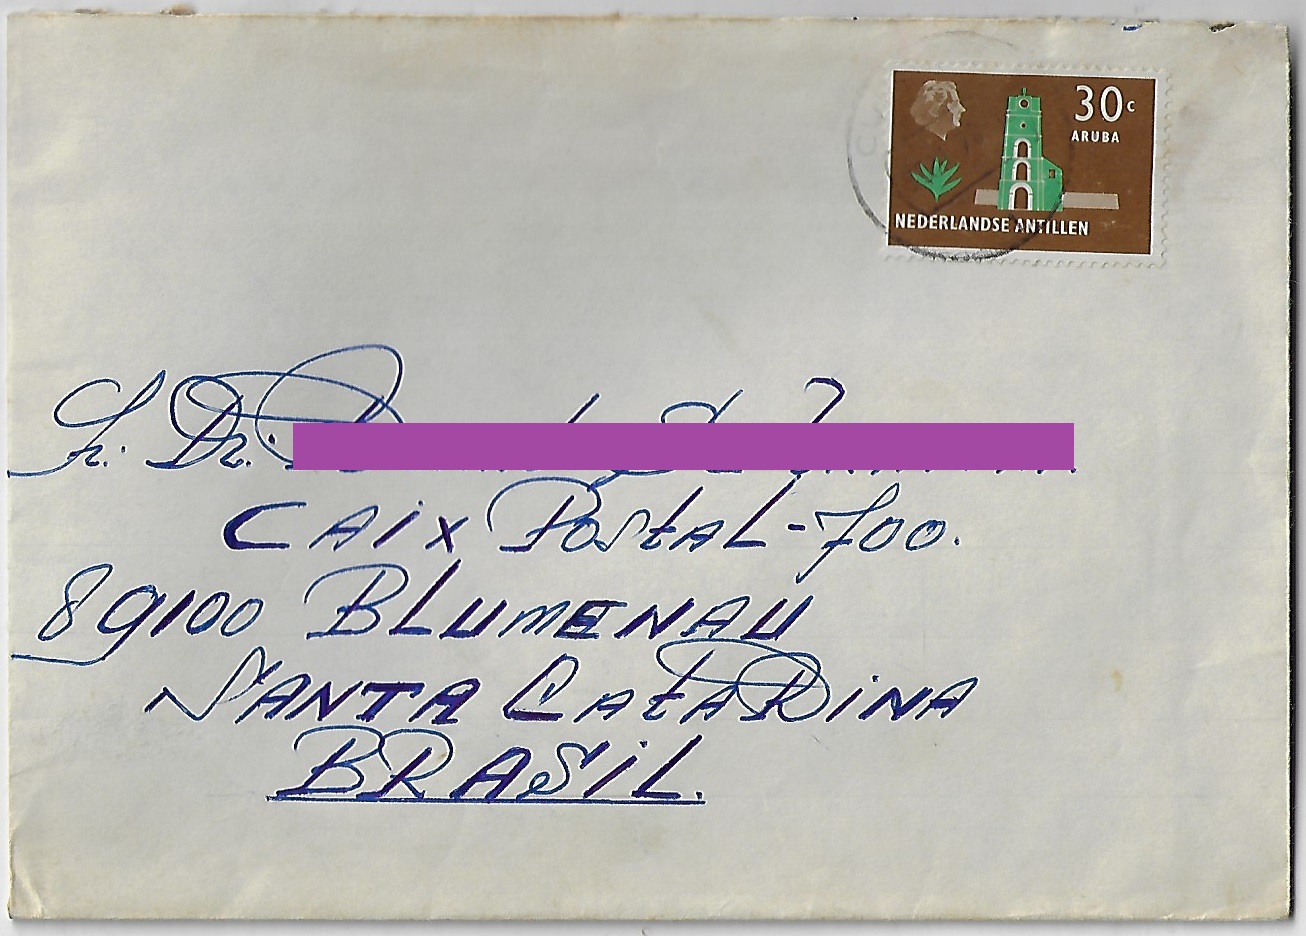 30c
ARUBA
NEDERLANDSE ANTILLEN
Sr. Dr.
CAIX POSTAL-700.
89100 BLUMENAU
SANTA CATARINA
BRASIL.